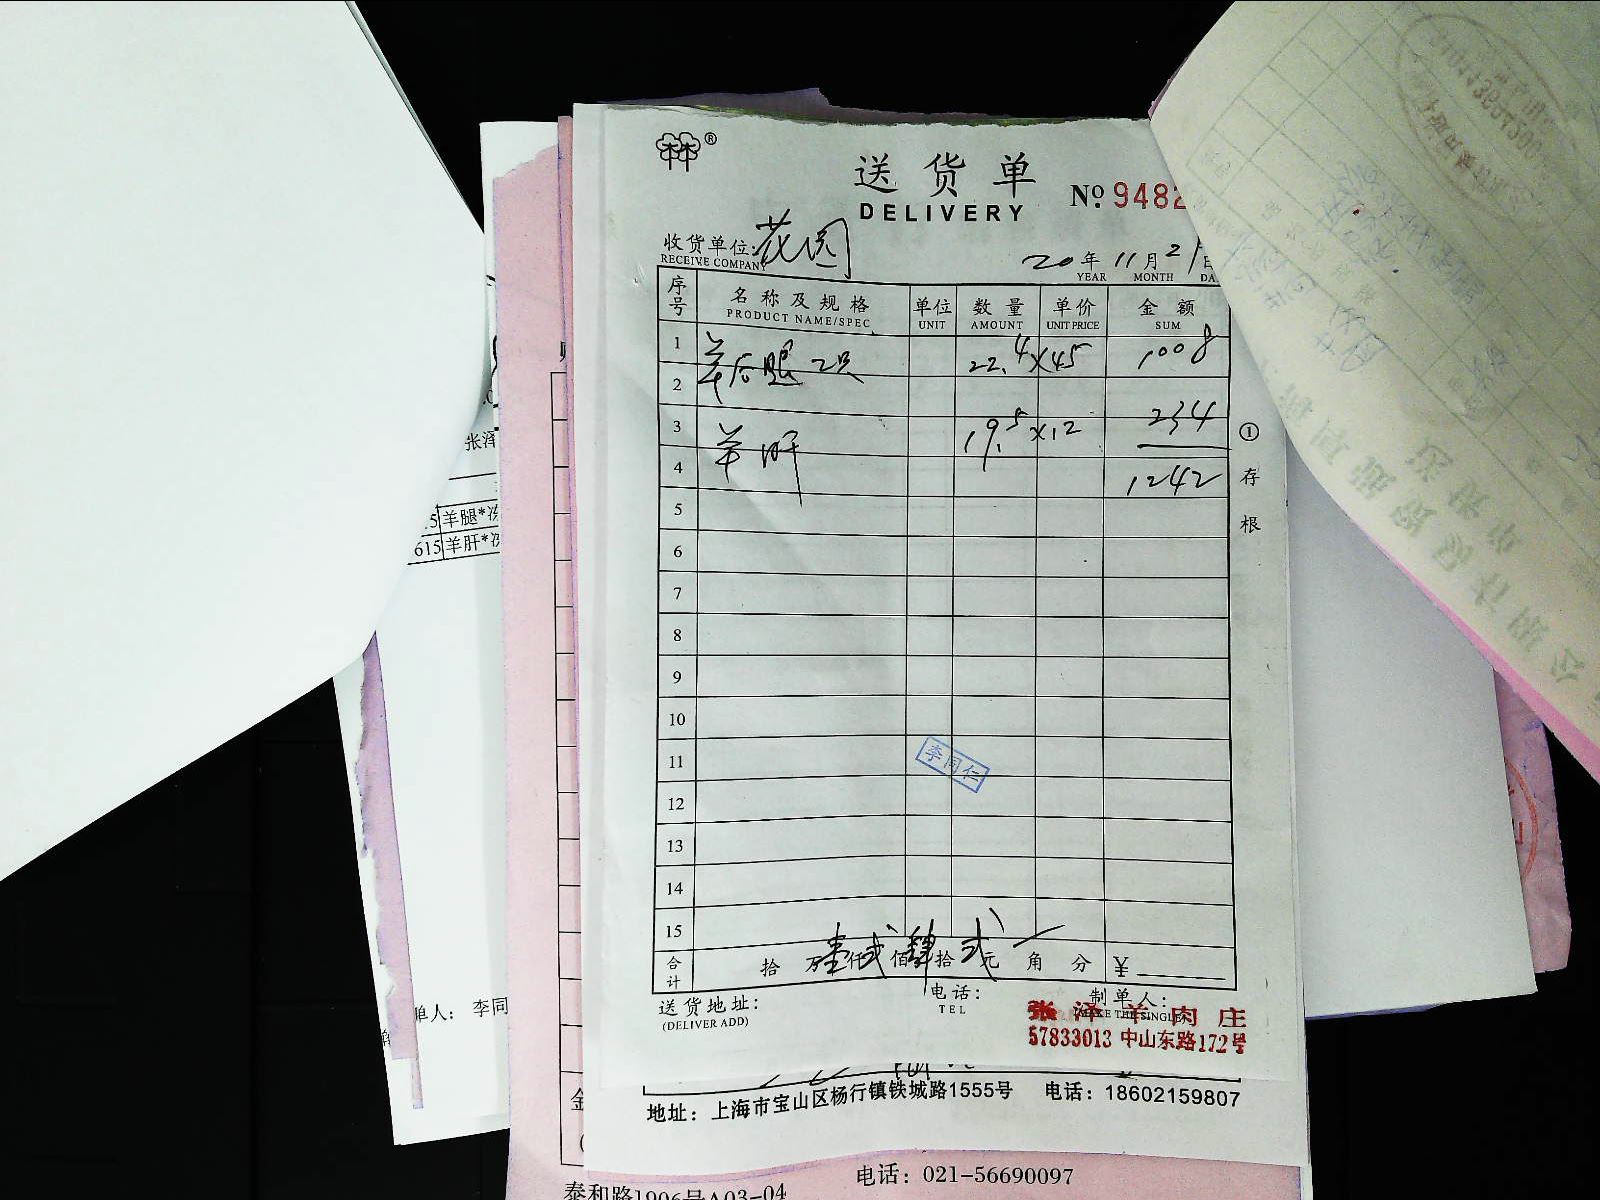 ®
送货单
DELIVERY
№ 9482
收货单位: 花园
RECEIVE COMPANY
20年11月21日
YEAR MONTH DA
序号 名称及规格 单位 数量 单价 金额
PRODUCT NAME/SPEC UNIT AMOUNT UNIT PRICE SUM
1 羊后腿 2只 22.4×45 1008
2
3 羊肝 19.5×12 234
4 1242
5
6
7
8
9
10
11
12
13
14
15
李同仁
合计 拾 万壹仟贰佰肆拾贰元 角 分 ¥
①存根
送货地址: 电话: 制单人:
(DELIVER ADD) TEL
张泽羊肉庄
57833013 中山东路172号
地址：上海市宝山区杨行镇铁城路1555号 电话：18602159807
电话：021-56690097
泰和路1906号A03-04
张泽
5 羊腿*冻
615 羊肝*冻
单人： 李同
金